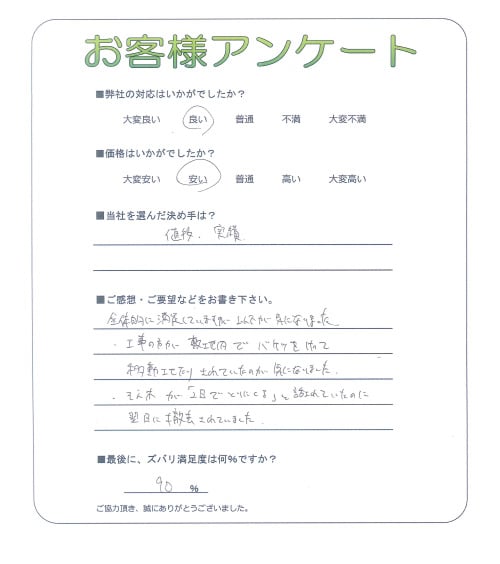 お客様アンケート
■弊社の対応はいかがでしたか？
大変良い 良い 普通 不満 大変不満
■価格はいかがでしたか？
大変安い 安い 普通 高い 大変高い
■当社を選んだ決め手は？
値段、実績
■ご感想・ご要望などをお書き下さい。
全体的に満足していますが 気になりました
・工事の方が 敷地内で バケツを けって
移動 されていたのが気になりました。
・ が「2日で とりにくる」と 話されていたのに
翌日に撤去されていました。
■最後に、ズバリ満足度は何%ですか？
90 %
ご協力頂き、誠にありがとうございました。